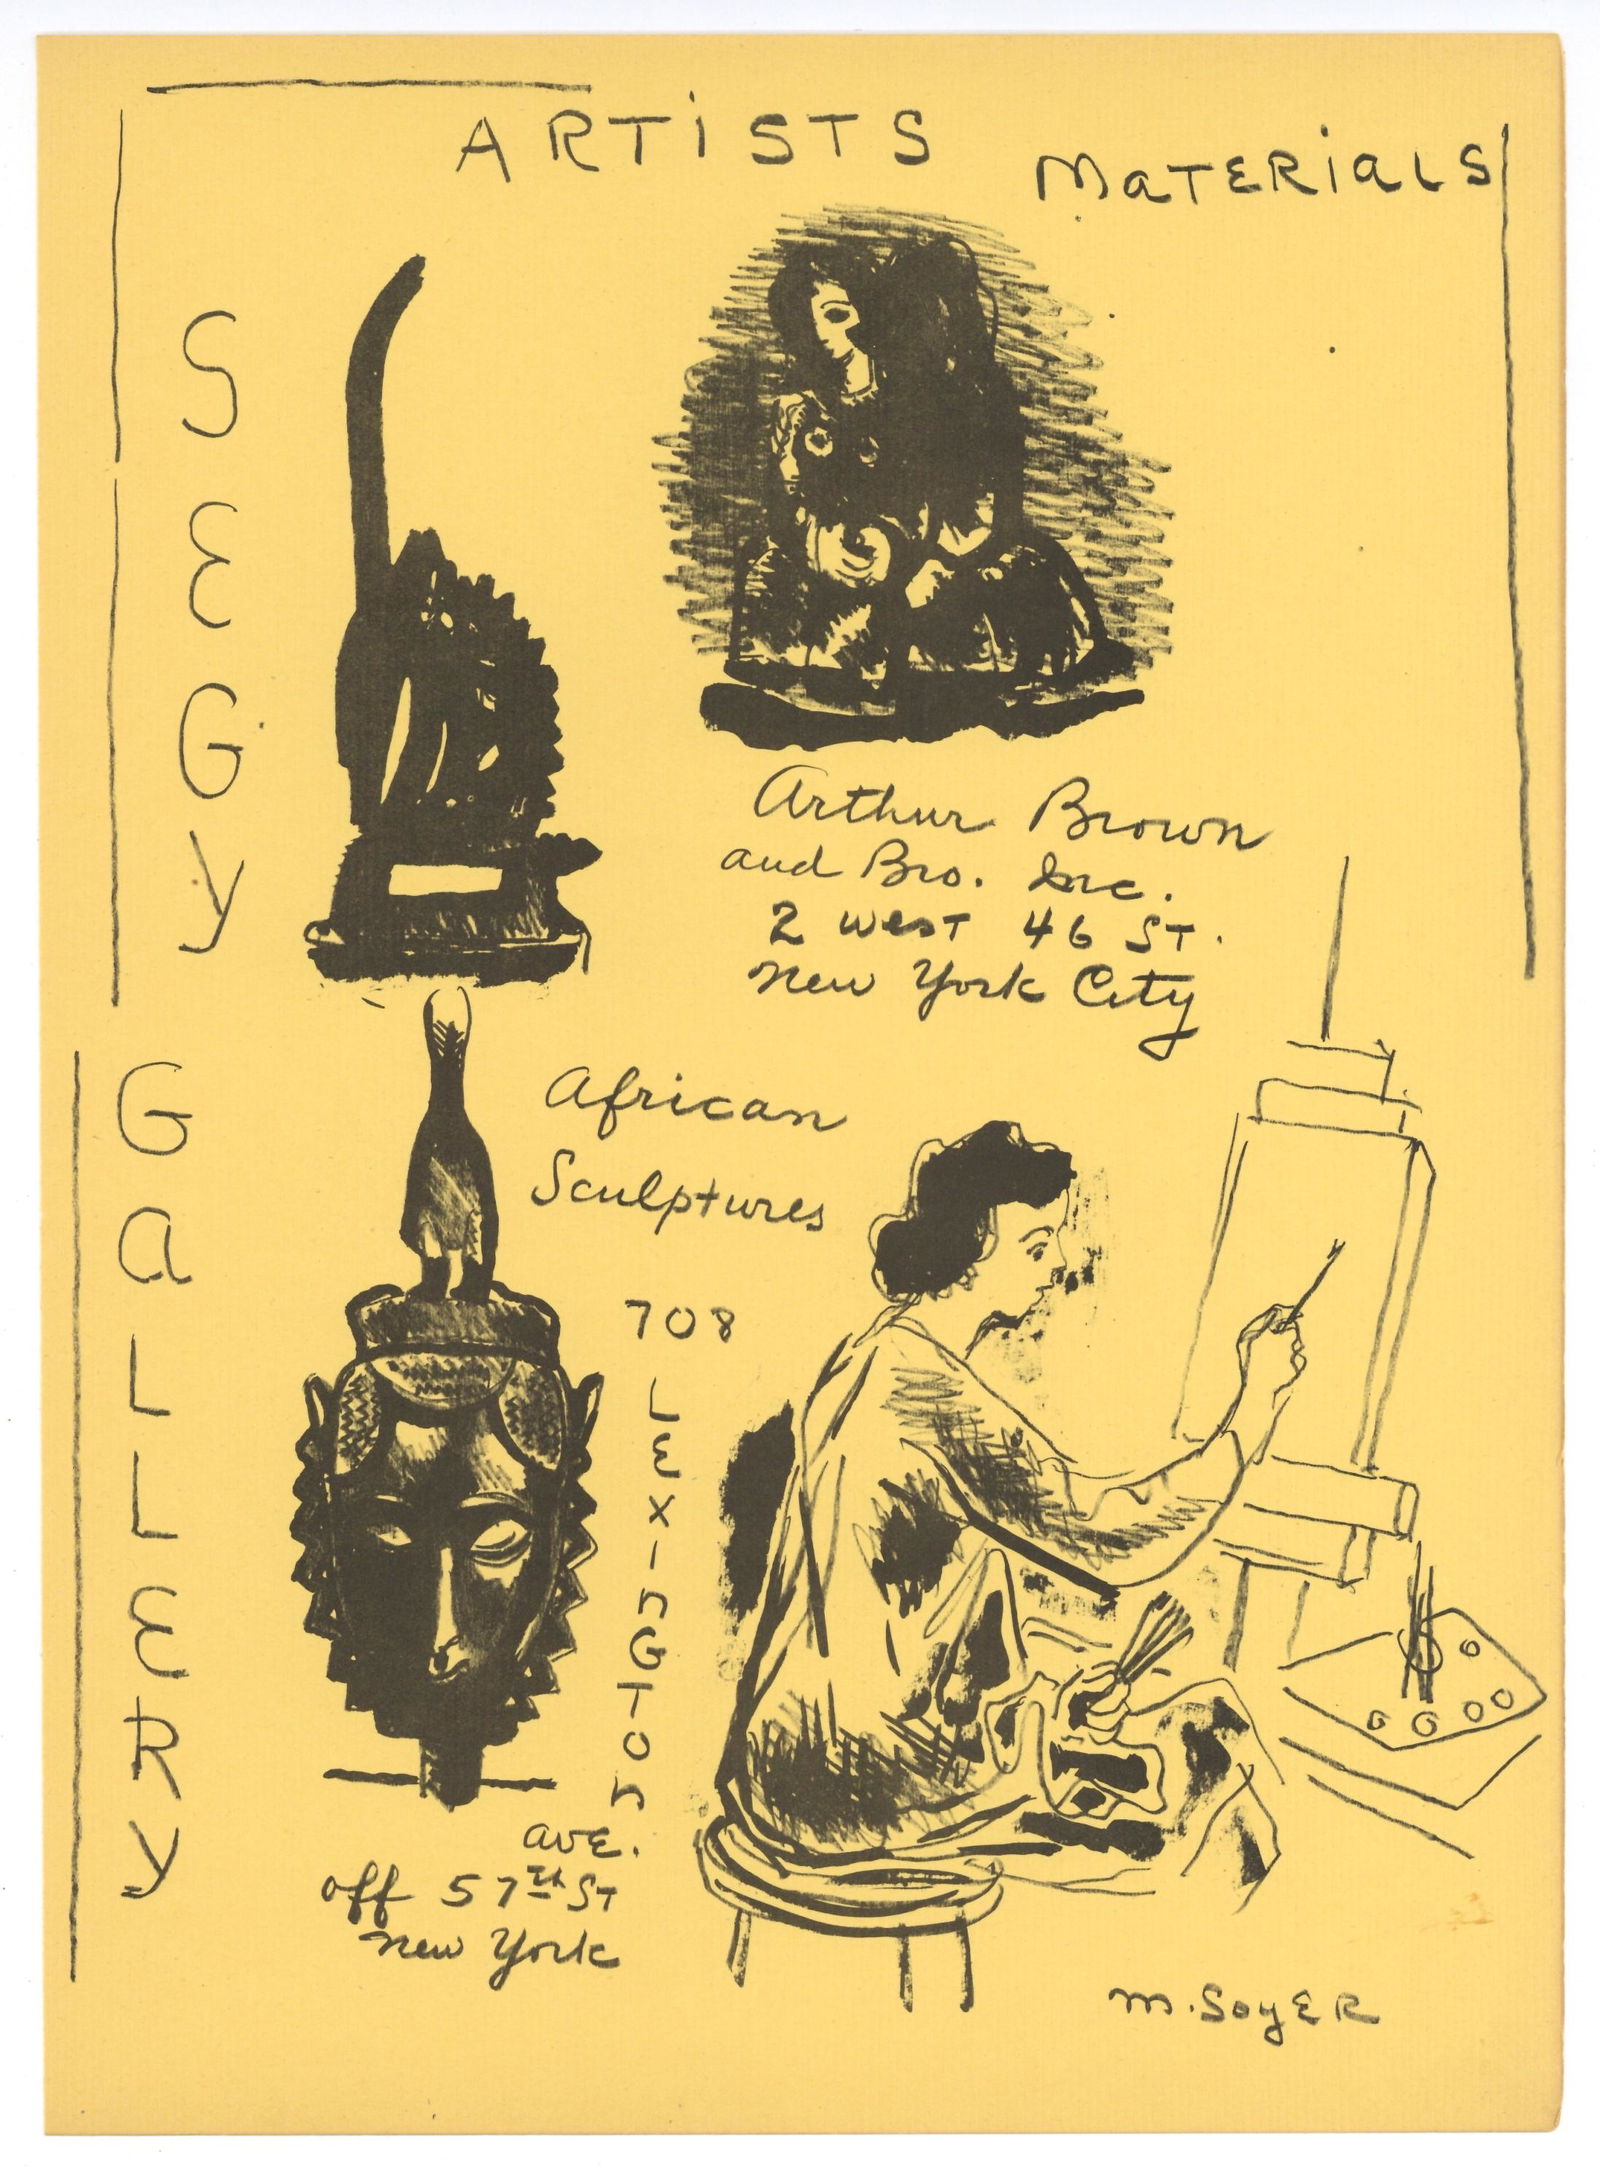 ARTiSTS MaTERiaLS
SEGY
GaLLERY
Arthur Brown
and Bro. Inc.
2 west 46 ST.
New York City
African
Sculptures
708
LEXINGTON
avE.
off 57th ST
New York
M. SoyER